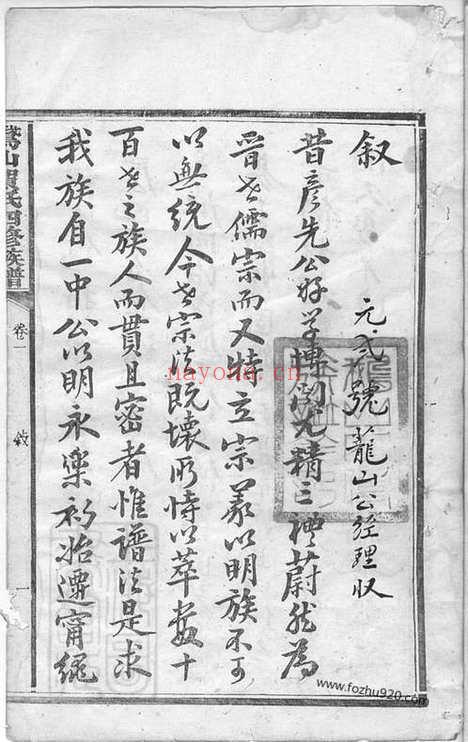 叙
元弍號蘢山公經理収
昔彦先公好学博闻尤精三禮蔚然為
晋世儒宗而又特立宗義以明族不可
以無統今世宗法既壞所恃以萃數十
百世之族人而貫且密者惟譜法是求
我族自一中公以明永樂初始遷甯繩
賀氏四修族譜
卷一
敘
一
nayona.cn
www.fozhu920.com